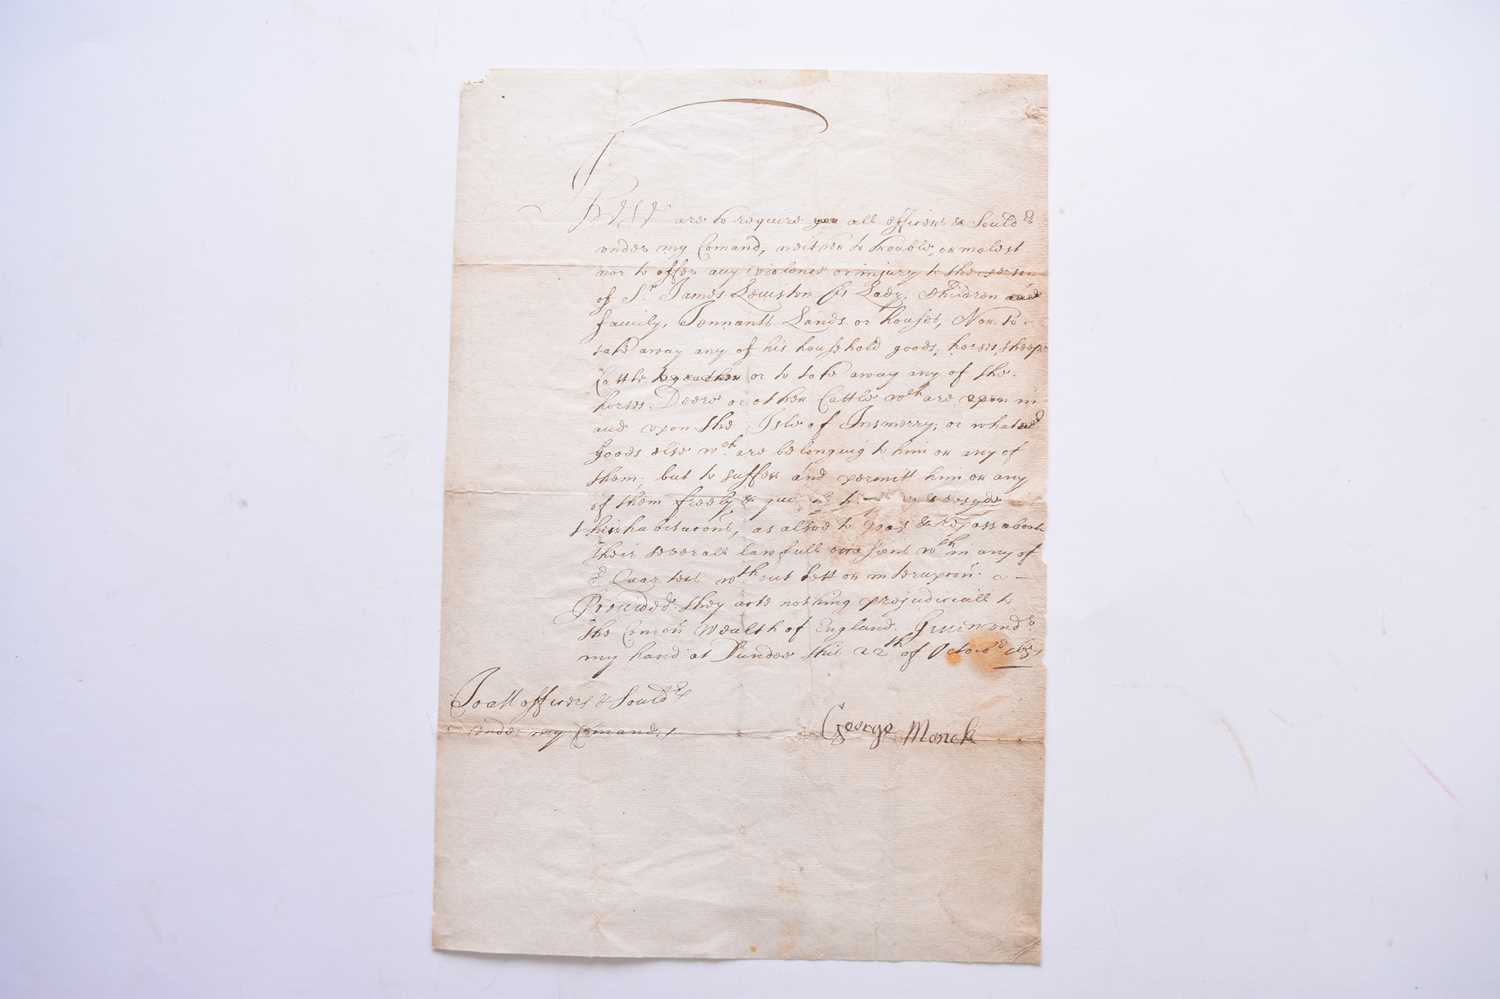 These are to require you all officers & Sould:rs
under my Comand, neither to trouble, or molest
nor to offer any violence or injury to the person
of Sr. James Lewiston his Lady, Children and
family, Tennants Lands or houses, Nor to
take away any of his household goods, horses, sheep
Cattle together or to take away any of the
horses Deere or other Cattle wch are upon in
and upon the Isle of Insmerry, or what
goods else wch are belonging to him or any of
them, but to suffer and permitt him or any
of them freely &
their habitacons, as alsoe to pass & repass about
their severall lawfull occasions wthin any of
Quarters wthout lett or interupcon
Provided they acte nothing prejudiciall to
the Comon Wealth of England. Given under
my hand at Dundee this 22th of Octobr
To all officers & Sould:rs
under my Comand,
George Monck